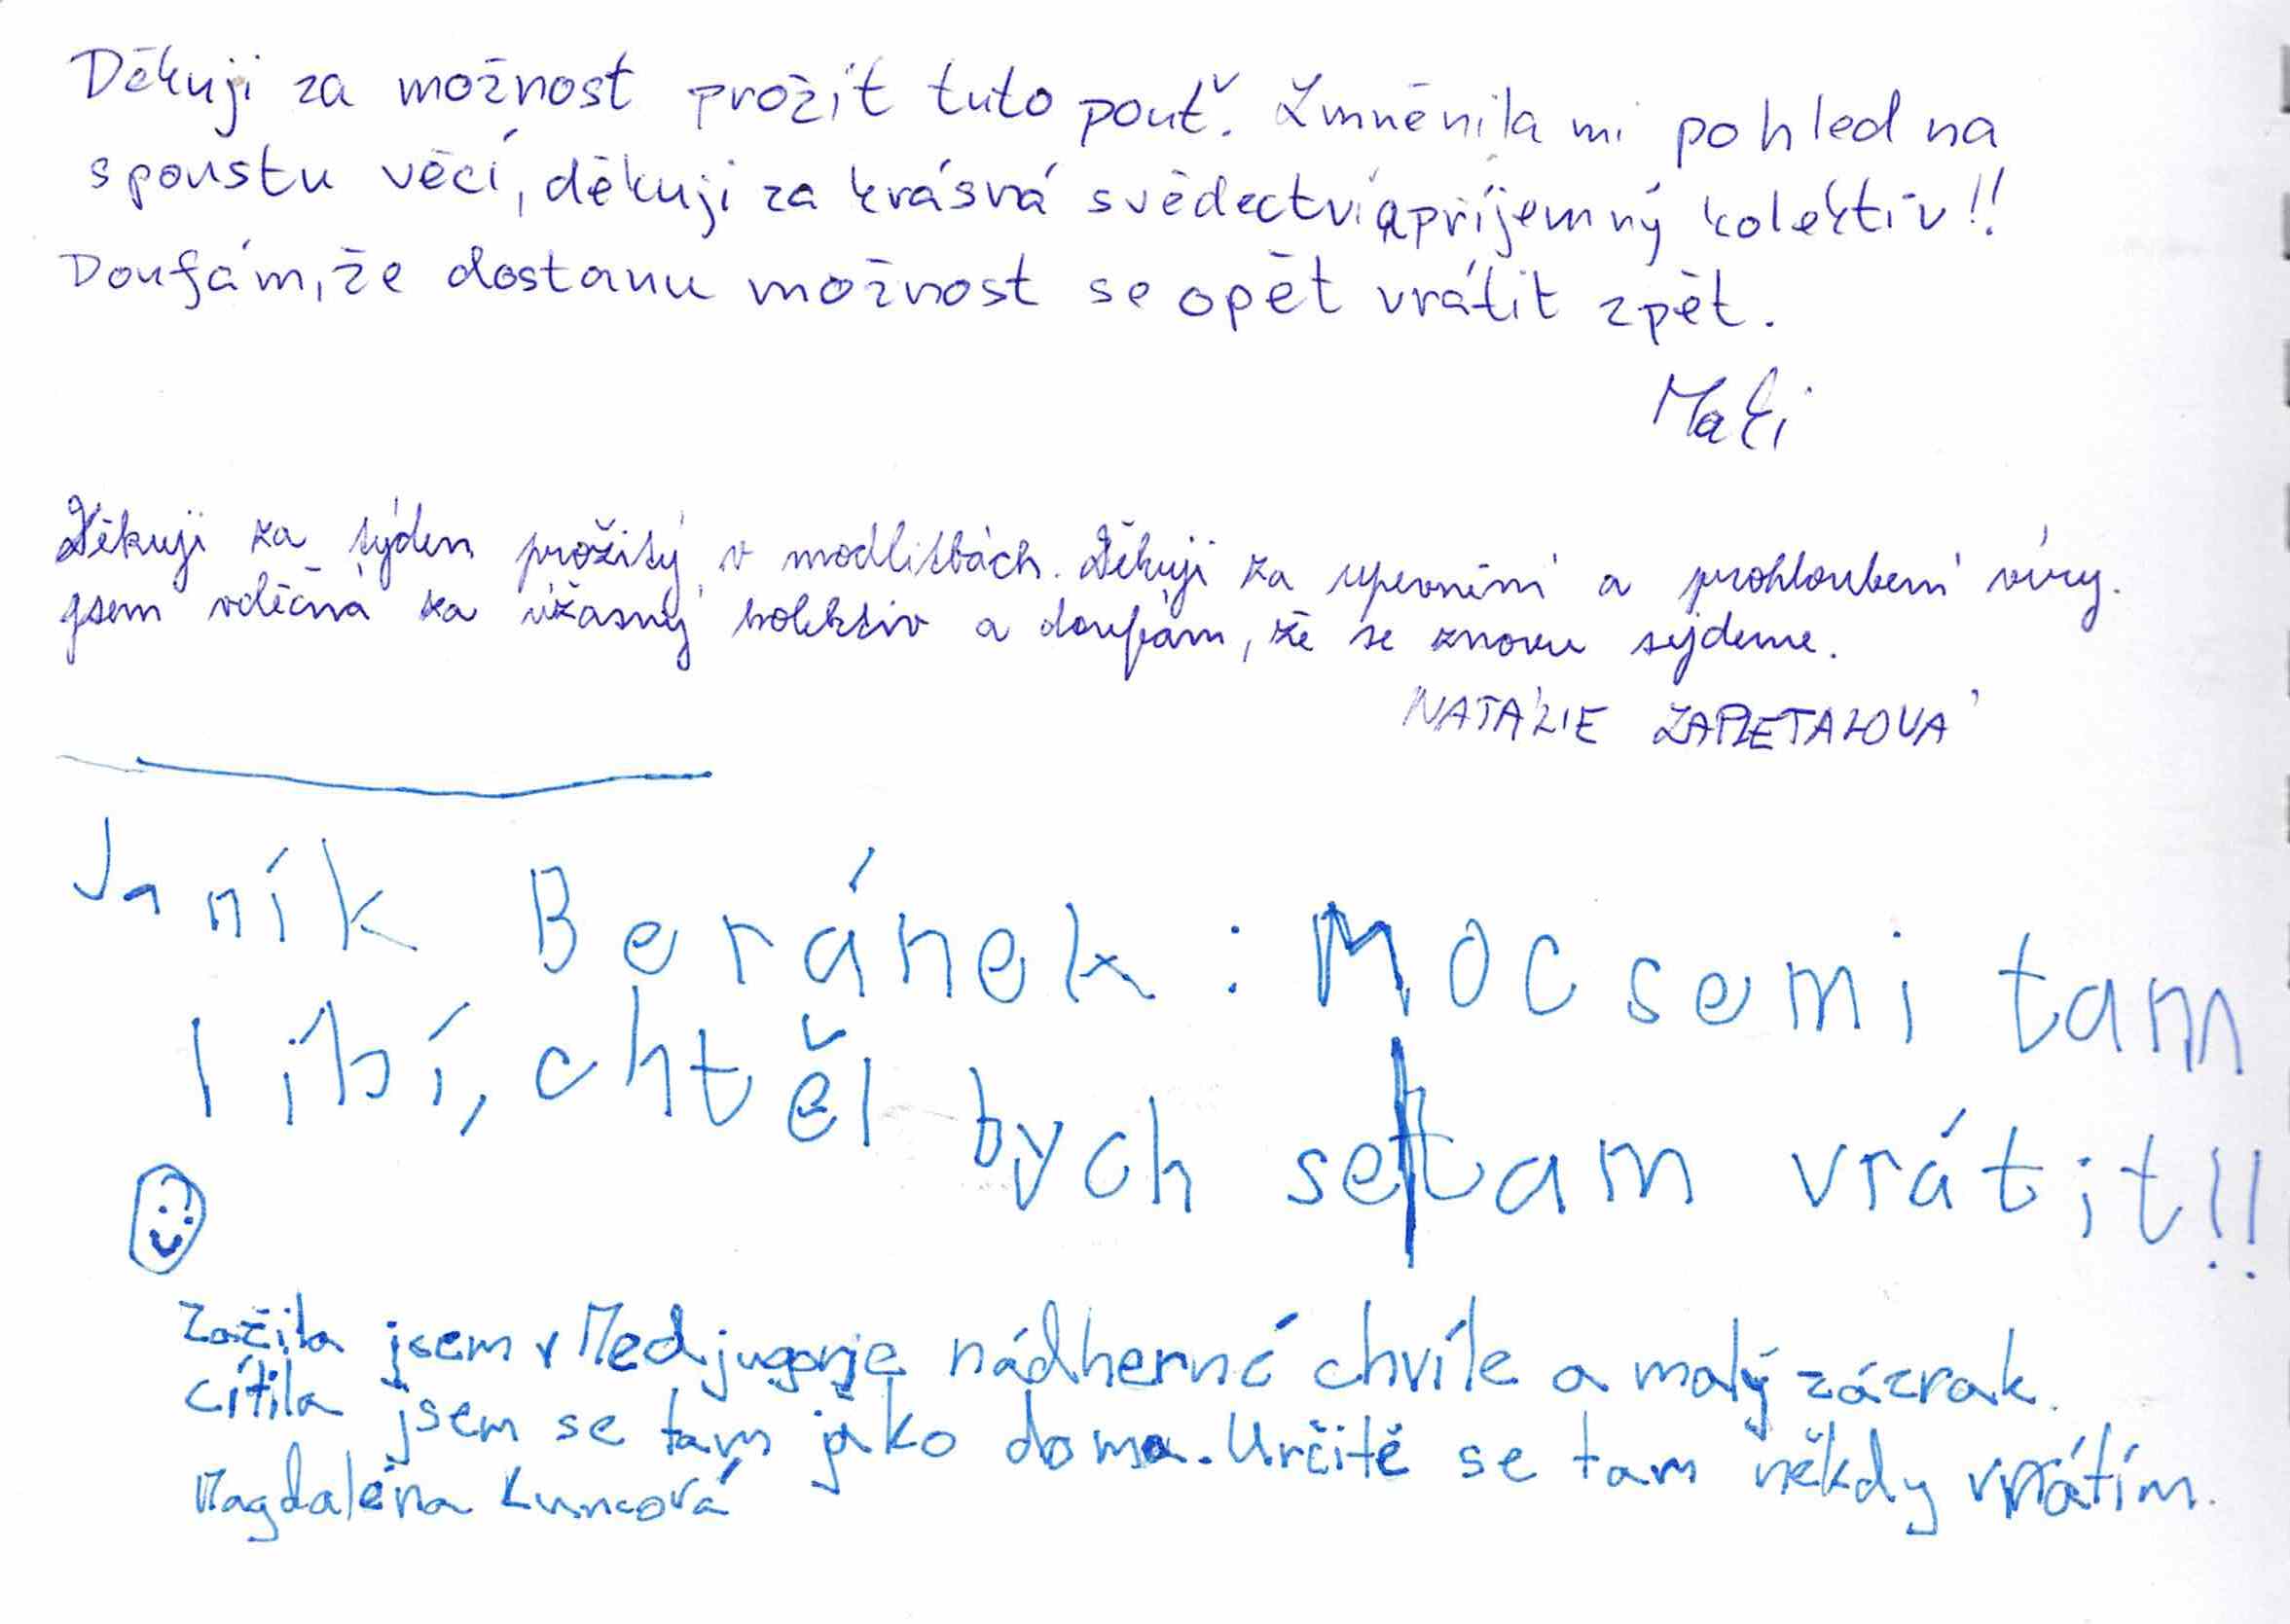 Děkuji za možnost prožít tuto pouť. Zmněnila mi pohled na
spoustu věcí, děkuji za krásná svědectví a příjemný kolektiv!!
Doufám, že dostanu možnost se opět vrátit zpět.
Děkuji za týden prožitý v modlitbách. Děkuji za upevnění a prohloubení víry.
Jsem vděčná za úžasný kolektiv a doufám, že se znovu sejdeme.
NATÁLIE ZAPLETALOVÁ
Janík Beránek: Moc se mi tam
líbí, chtěl bych se tam vrátit!!
Zažila jsem v Medjugorje nádherné chvíle a malý zázrak.
Cítila jsem se tam jako doma. Určitě se tam někdy vrátím.
Magdaléna Kuncová